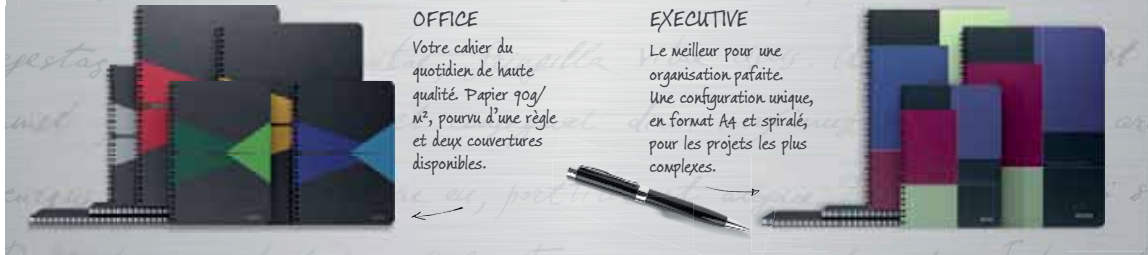 OFFICE
Votre cahier du
quotidien de haute
qualité. Papier 90g/
m², pourvu d'une règle
et deux couvertures
disponibles.
EXECUTIVE
Le meilleur pour une
organisation pafaite.
Une confguration unique,
en format A4 et spiralé,
pour les projets les plus
complexes.